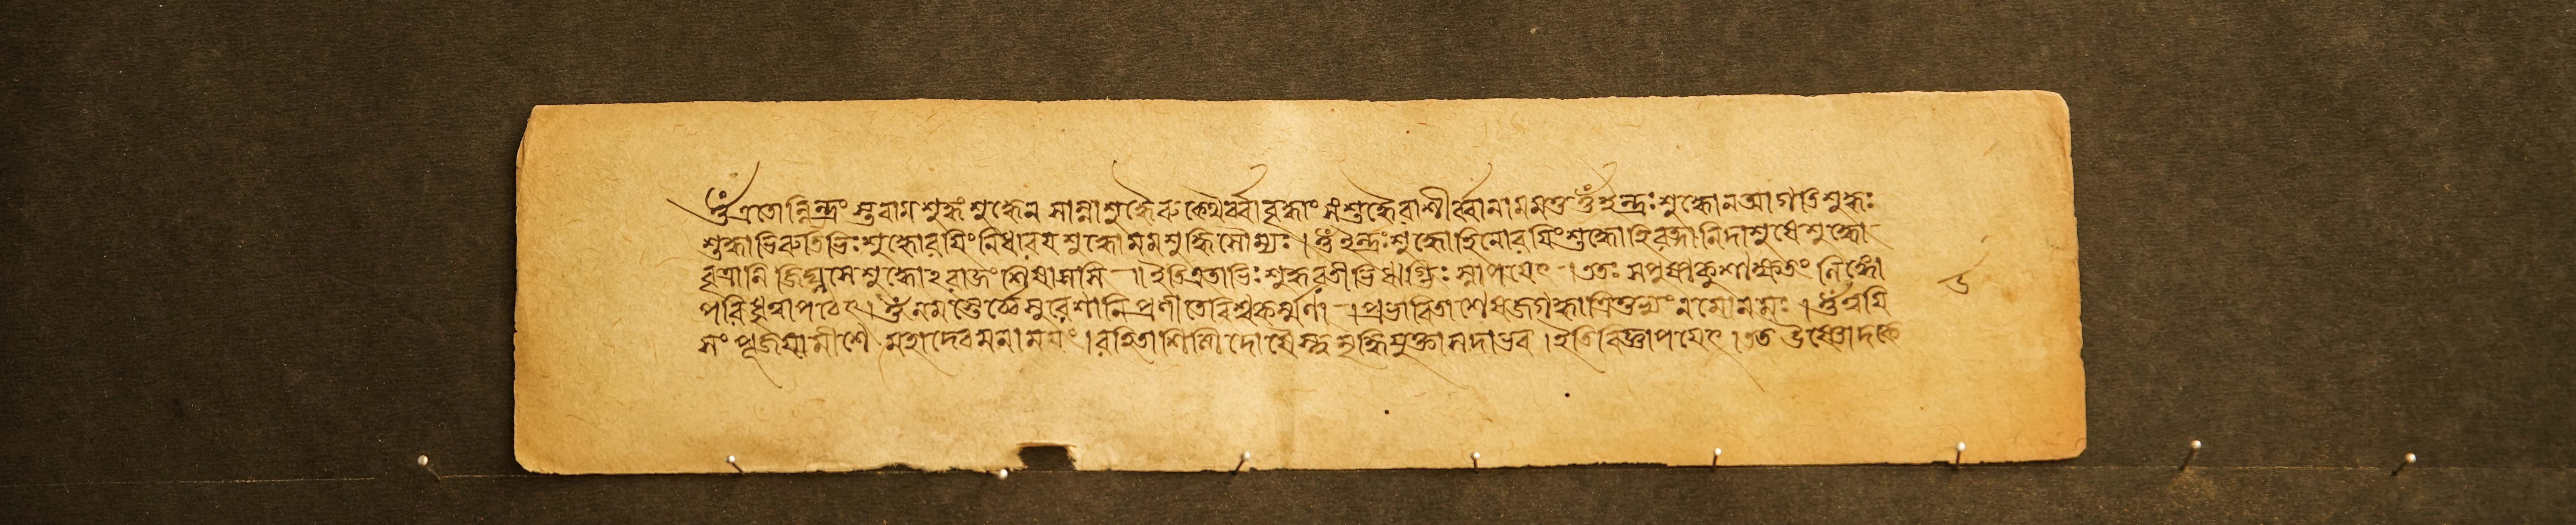 ওঁ এতোন্বিন্দ্রং স্তবাম শুদ্ধং শুদ্ধেন সাম্না শুদ্ধৈরুক্থৈর্ব্বাবৃদ্ধাংসং শুদ্ধৈরাশীর্ব্বান্মমত্তু ওঁ ইন্দ্রঃ শুদ্ধোনআগহি শুদ্ধঃ
শুদ্ধাভিরুতিভিঃ শুদ্ধোরয়িং নিধারয় শুদ্ধোমমদ্ধি সৌম্যঃ । ওঁ ইন্দ্রঃ শুদ্ধোহিনোরয়িং শুদ্ধোহিরত্নানি দাশুষে শুদ্ধো
বৃত্রানি জিঘ্নসে শুদ্ধোবাজং শিষাসসি ॥ ইতি এতাভিঃ শুদ্ধবতীভিরদ্ভিঃ স্নাপয়েৎ । ততঃ সপুষ্পকুশাক্ষতং
পরিধাপয়েৎ । ওঁ নমস্তেঽর্চ্চে সুরেশানি প্রণীতে বিশ্বকর্ম্মণা । প্রভাবিতাশেষজগদ্ধাত্রি তুভ্যং নমোনমঃ । ওঁ ত্বয়ি
সং পূজয়ামীশে মহাদেবমনাময়ং । রহিতাশিল্পিদোষৈস্ত্বমৃদ্ধিযুক্তা সদাভব । ইতি বিজ্ঞাপয়েৎ । তত উষ্ণোদকে